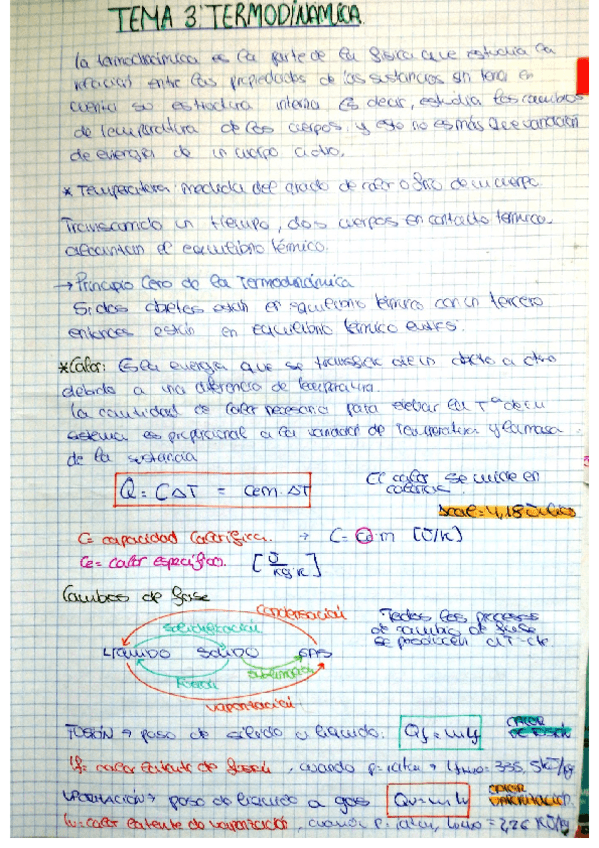 TEMA 3 TERMODINÁMICA
La termodinámica es la parte de la física que estudia la
relación entre las propiedades de las sustancias sin tener en
cuenta su estructura interna. Es decir, estudia los cambios
de temperatura de los cuerpos y esto no es más que variación
de energía de un cuerpo a otro.
* Temperatura: medida del grado de calor o frío de un cuerpo.
Transcurrido un tiempo, dos cuerpos en contacto térmico
alcanzan el equilibrio térmico.
→ Principio Cero de la Termodinámica
Si dos objetos están en equilibrio térmico con un tercero
entonces están en equilibrio térmico entre sí.
* Calor: Es la energía que se transfiere de un objeto a otro
debido a una diferencia de temperatura.
La cantidad de calor necesaria para elevar la Tª de un
sistema es proporcional a la variación de Temperatura y la masa
de la sustancia
Q = CΔT = cem·ΔT
El calor se mide en
calorías.
1cal = 4,18 Julios
C = capacidad calorífica. → C = Ce·m [J/K]
Ce = calor específico. [J/kg·K]
Cambios de fase
condensación
solidificación
LÍQUIDO SÓLIDO GAS
fusión
sublimación
vaporización
Todos los procesos
de cambio de fase
se producen a T cte
FUSIÓN → paso de sólido a líquido. Qf = m·Lf CALOR DE FUSIÓN
Lf = calor latente de fusión, cuando p = 1 atm →
VAPORIZACIÓN → paso de líquido a gas Qv = m·Lv CALOR VAPORIZACIÓN
Lv = calor latente de vaporización, cuando P = 1 atm,